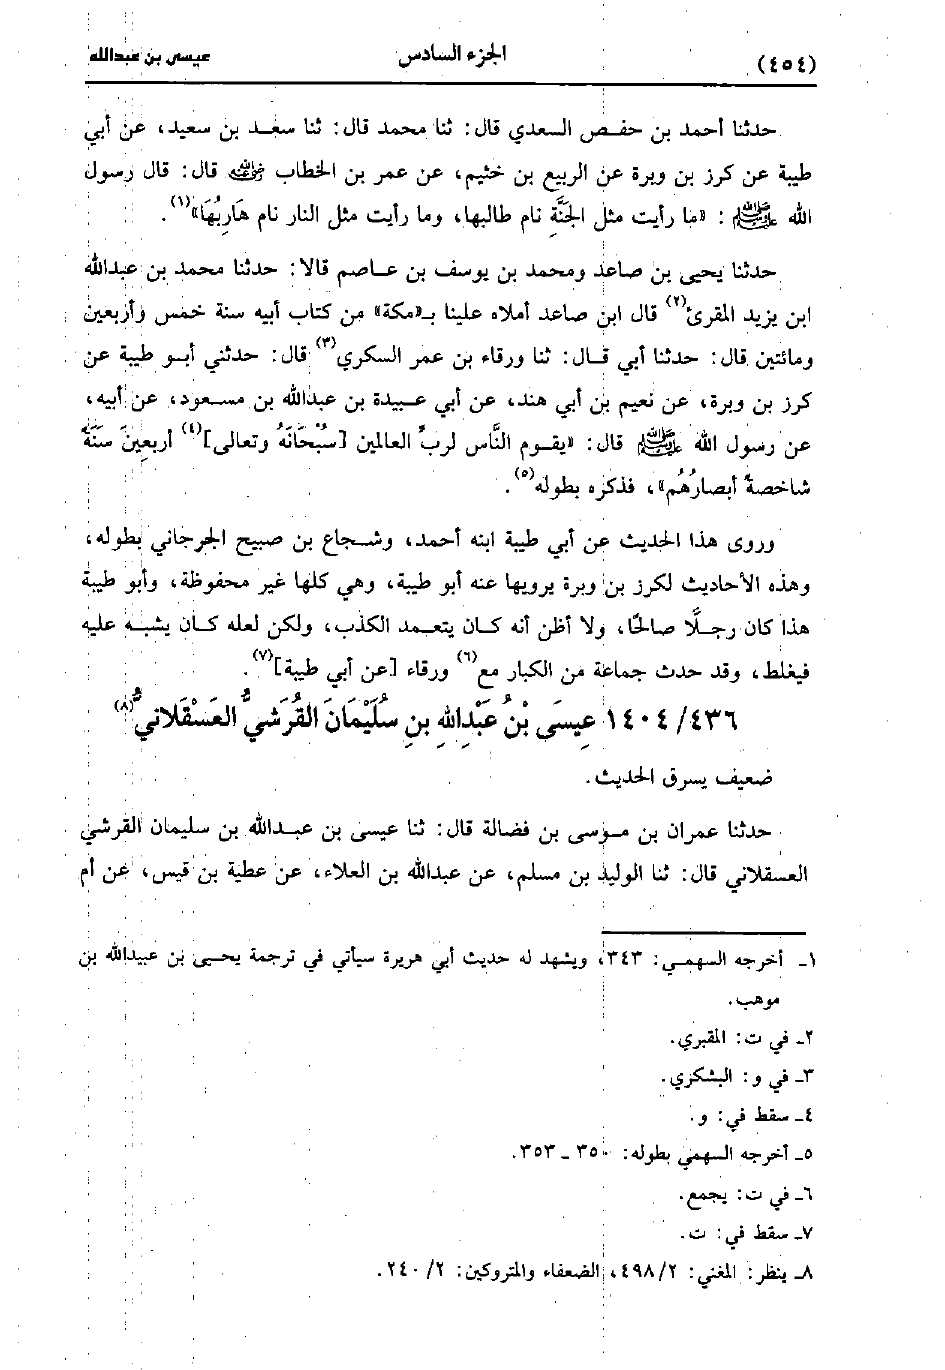 (٤٥٤) الجزء السادس عيسى بن عبدالله
حدثنا أحمد بن حفص السعدي قال: ثنا محمد قال: ثنا سعد بن سعيد، عن أبي
طيبة عن كرز بن وبرة عن الربيع بن خثيم، عن عمر بن الخطاب رضي الله عنه قال: قال رسول
الله ﷺ : «ما رأيت مثل الجَنَّةِ نام طالبها، وما رأيت مثل النار نام هَارِبُهَا»(١).
حدثنا يحيى بن صاعد ومحمد بن يوسف بن عاصم قالا: حدثنا محمد بن عبدالله
ابن يزيد المقرئ(٢) قال ابن صاعد أملاه علينا بـ«مكة» من كتاب أبيه سنة خمس وأربعين
ومائتين قال: حدثنا أبي قال: ثنا ورقاء بن عمر السكري(٣) قال: حدثني أبو طيبة عن
كرز بن وبرة، عن نعيم بن أبي هند، عن أبي عبيدة بن عبدالله بن مسعود، عن أبيه،
عن رسول الله ﷺ قال: «يقوم النَّاس لربِّ العالمين [سُبْحَانَهُ وتعالى](٤) أربعِينَ سَنَةً
شاخصةً أبصارُهُم»، فذكره بطوله(٥).
وروى هذا الحديث عن أبي طيبة ابنه أحمد، وشجاع بن صبيح الجرجاني بطوله،
وهذه الأحاديث لكرز بن وبرة يرويها عنه أبو طيبة، وهي كلها غير محفوظة، وأبو طيبة
هذا كان رجلًا صالحًا، ولا أظن أنه كان يتعمد الكذب، ولكن لعله كان يشبه عليه
فيغلط، وقد حدث جماعة من الكبار مع(٦) ورقاء [عن أبي طيبة](٧).
١٤٠٤/٤٣٦ عِيسَى بْنُ عَبْدِاللهِ بنِ سُلَيْمَانَ القُرَشيُّ العَسْقَلانيُّ(٨)
ضعيف يسرق الحديث.
حدثنا عمران بن موسى بن فضالة قال: ثنا عيسى بن عبدالله بن سليمان القرشي
العسقلاني قال: ثنا الوليد بن مسلم، عن عبدالله بن العلاء، عن عطية بن قيس، عن أم
١ـ أخرجه السهمي: ٣٤٣، ويشهد له حديث أبي هريرة سيأتي في ترجمة يحيى بن عبيدالله بن
موهب.
٢ـ في ت: المقبري.
٣ـ في و: اليشكري.
٤ـ سقط في: و.
٥ـ أخرجه السهمي بطوله: ٣٥٠ ـ ٣٥٣.
٦ـ في ت: يجمع.
٧ـ سقط في: ت.
٨ـ ينظر: المغني: ٤٩٨/٢، الضعفاء والمتروكين: ٢٤٠/٢.